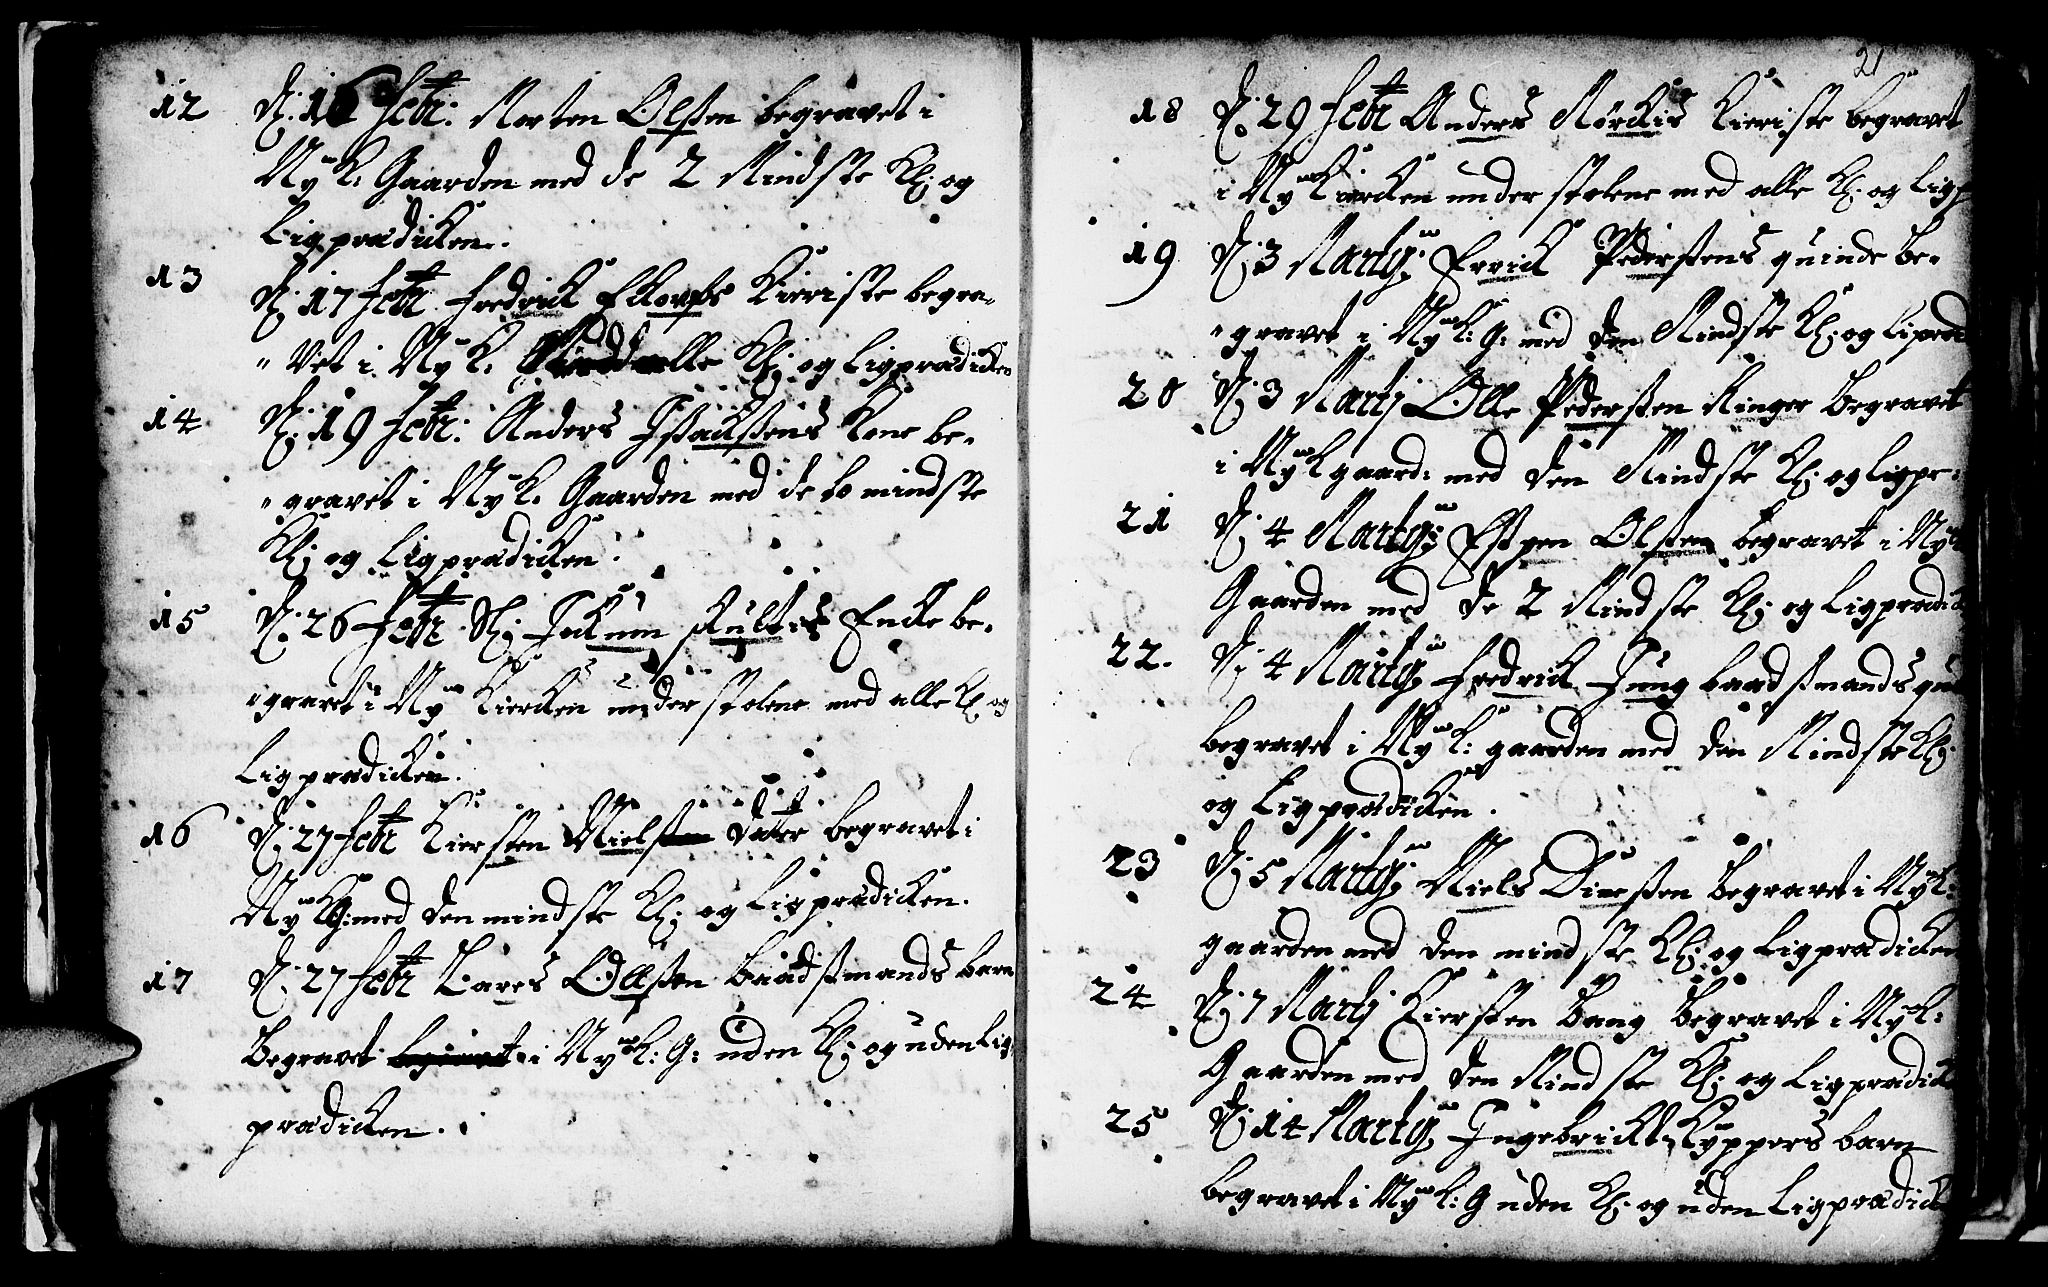 12 D: 16 Febr: Morten Olßen begravet i
Ny K: Gaarden med de 2 Mindste Kl: og
Ligprædicken.
13 D: 17 Febr: Fredrick Kieriste begra-
"vet i Ny K: alle Kl: og Ligprædicken
14 D: 19 Febr: Anders Ißackßens Kone be-
"gravet i Ny K. Gaarden med de to mindste
Kl: og Ligprædicken.
15 D: 26 Febr Sl: Jochum Encke be-
"gravet i Ny Kiercken under stolene med alle Kl: og
Ligprædicken.
16 D: 27 Febr Kiersten Niels Dater begravet i
Ny KG: med den mindste Kl: og Ligprædicken.
17 D: 27 Febr Lares Olßen Baadßmands barn
Begravet i Ny K: G: uden Kl: og uden Lig
prædicken.
21
18 D: 29 Febr Anders Kieriste begravet
i Ny Kiercken under stolene med alle Kl: og Ligp
19 D: 3 Martij Errick Pederßens quinde be-
"gravet i Ny K: G: med den Mindste Kl: og Lipræd
20 D: 3 Martij Olle Pederßen Ringer begravet
i Ny K gaard: med den Mindste Kl: og Ligpr:
21 D: 4 Martij Espen Olßen begravet i Ny K
Gaarden med de 2 Mindste Kl: og Ligprædick
22. D: 4 Martij Fredrick Jung baadßmands qui
begravet i Ny K: gaarden med den Mindste Kl:
og Ligprædicken.
23 D: 5 Martij Niels begravet i Ny K:
gaarden med den mindste Kl: og Ligprædicken
24 D: 7 Martij Kiersten Bang begravet i Ny K:
Gaarden med den Mindste Kl: og Ligprædick
25 D: 14 Martij Ingebrickt Kyppers barn
begravet i Ny K: G uden Kl: og uden Ligprædick